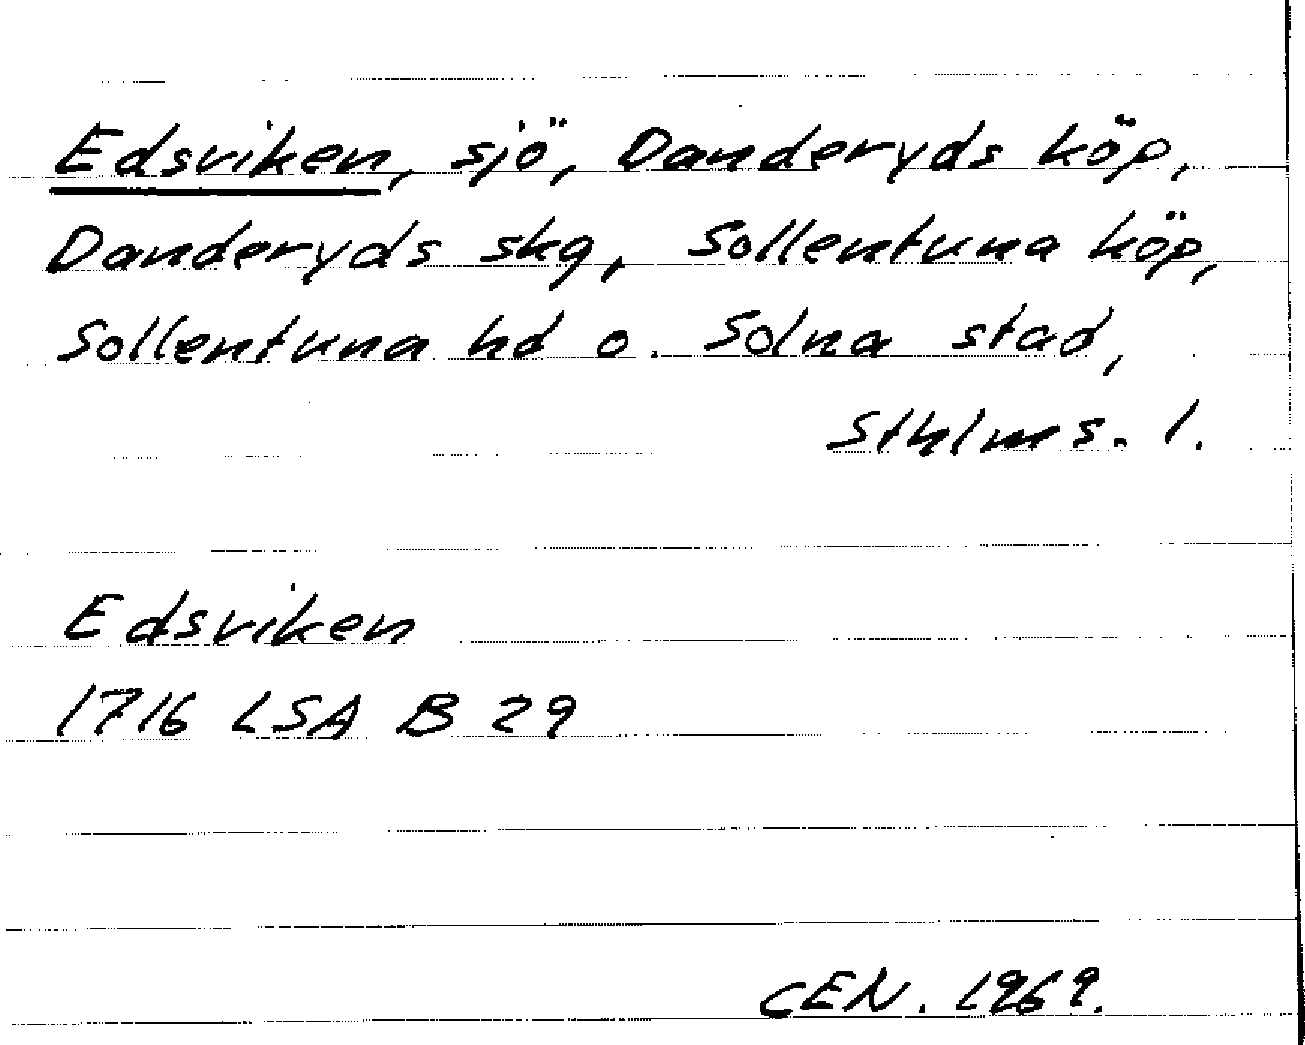 Edsviken, sjö, Danderyds köp,
Danderyds skg, Sollentuna köp,
Sollentuna hd o. Solna stad,
Sthlms. l.
Edsviken
1716 LSA B 29
CEN. 1969.